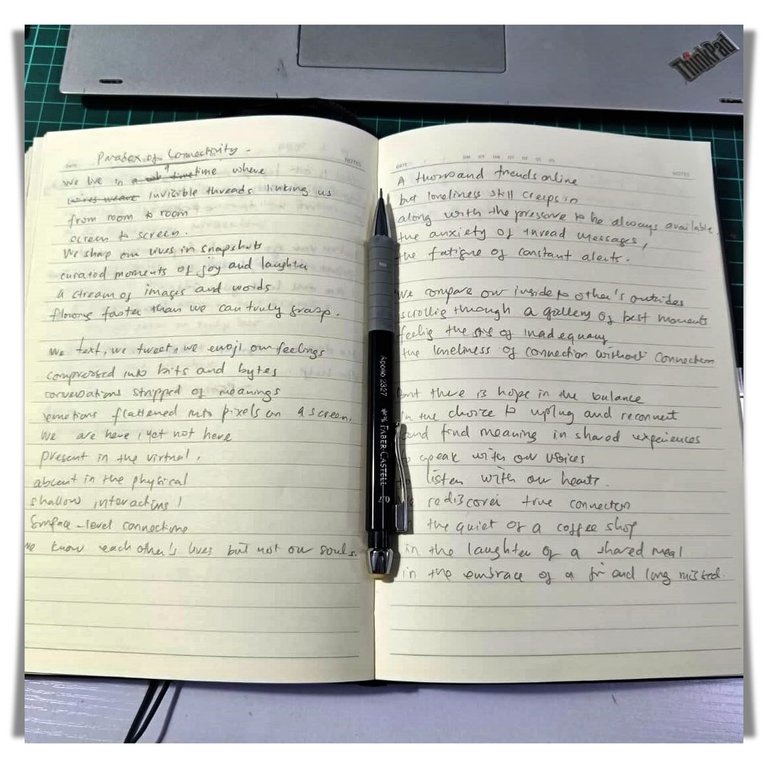 ThinkPad
Paradox of Connectivity.
NOTES
We live in a time where
invisible threads linking us
from room to room
screen to screen.
We sharp our lives in snapshots
curated moments of joy and laughter
A stream of images and words
flowing faster than we can truly grasp.
We text, we tweet, we emoji our feelings
compressed into bits and bytes
conversations stripped of meanings
emotions flattened into pixels on a screen.
We are here, yet not here
present in the virtual,
absent in the physical
shallow interactions!
Surface-level connections
We know each other's lives but not our souls.
APOLLO 2327
FABER-CASTELL
DATE
NOTES
A thousand friends online
but loneliness still creeps in
along with the pressure to be always available.
the anxiety of unread messages,
the fatigue of constant alerts.
We compare our inside to other's outsides
scrolling through a gallery of best moments
feeling the of inadequacy
the loneliness of connection without connection
But there is hope in the balance
in the choice to unplug and reconnect
and find meaning in shared experiences
speak with our voices
listen with our hearts.
rediscover true connection
the quiet of a coffee shop
in the laughter of a shared meal
in the embrace of a friend long missed.